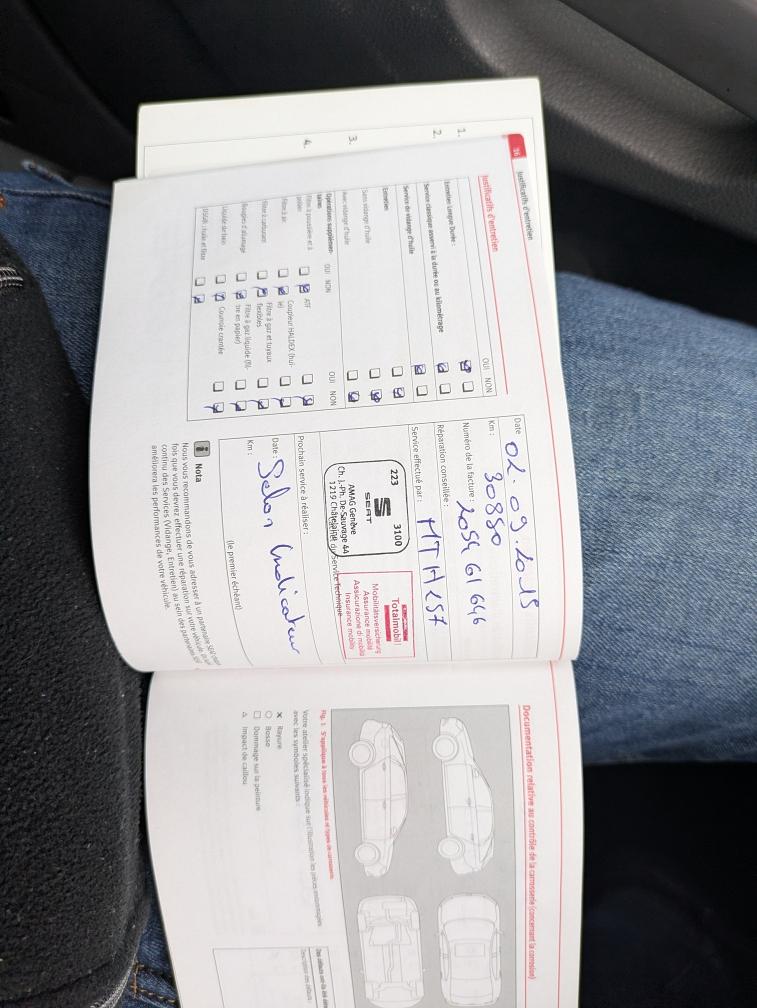 1.
2.
3.
4.
26
Justificatifs d'entretien
Justificatifs d'entretien
OUI NON
Entretien Longue Durée :
Service classique asservi à la durée ou au kilométrage
Service de vidange d'huile
Entretien
Sans vidange d'huile
Avec vidange d'huile
Opérations supplémen-
taires
OUI NON
OUI NON
Filtre à poussière et à
pollen
ATF
Filtre à air
Coupleur HALDEX (hui-
le)
Filtre à carburant
Filtre à gaz et tuyaux
flexibles
Bougies d'allumage
Filtre à gaz liquide (fil-
tre en papier)
Liquide de frein
Courroie crantée
DSG® : huile et filtre
Date
02.09.2019
Km :
30880
Numéro de la facture :
Réparation conseillée :
Service effectué par :
223 3100
SEAT
AMAG Genève
Ch. J.-Ph. De-Sauvage 44
1219 Châtelaine
du Service Technique
Totalmobil!
Mobilitätsversicherung
Assurance mobilité
Assicurazione di mobilità
Insurance mobility
Prochain service à réaliser :
Date :
Selon Indicateur
Km :
(le premier échéant)
i Nota
Nous vous recommandons de vous adresser à un partenaire SEAT
fois que vous devrez effectuer une réparation sur votre véhicule.
continu des Services (Vidange, Entretien) au sein des partenaires
améliorera les performances de votre véhicule.
Documentation relative au contrôle de la carrosserie (concernant la corrosion)
Fig. 1 S'applique à tous les véhicules et types de carrosserie.
Votre atelier spécialisé indique sur l'illustration les pièces endommagées
avec les symboles suivants :
✕ Rayure
○ Bosse
□ Dommage sur la peinture
△ Impact de caillou